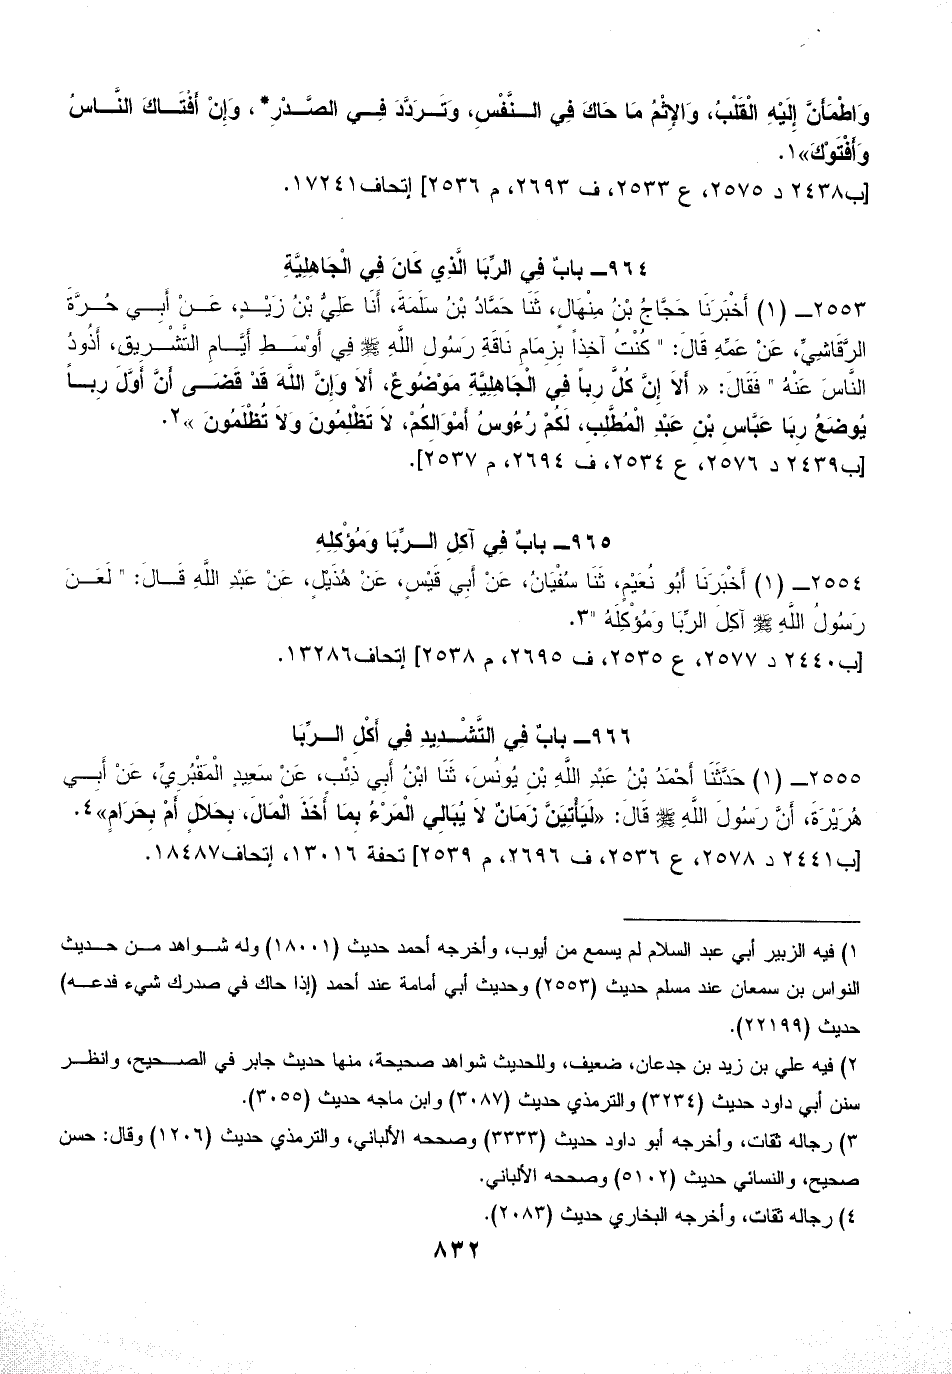 وَاطْمَأَنَّ إِلَيْهِ الْقَلْبُ، وَالإِثْمُ مَا حَاكَ فِي النَّفْسِ، وَتَرَدَّدَ فِي الصَّدْرِ*، وَإِنْ أَفْتَاكَ النَّاسُ
وَأَفْتَوْكَ»١.
[ب٢٤٣٨ د ٢٥٧٥، ع ٢٥٣٣، ف ٢٦٩٣، م ٢٥٣٦] إتحاف١٧٢٤١.
٩٦٤ـ بابٌ فِي الرِّبَا الَّذِي كَانَ فِي الْجَاهِلِيَّةِ
٢٥٥٣ـ (١) أَخْبَرَنَا حَجَّاجُ بْنُ مِنْهَالٍ، ثَنَا حَمَّادُ بْنُ سَلَمَةَ، أَنَا عَلِيُّ بْنُ زَيْدٍ، عَنْ أَبِي حُرَّةَ
الرَّقَاشِيِّ، عَنْ عَمِّهِ قَالَ: " كُنْتُ آخِذاً بِزِمَامِ نَاقَةِ رَسُولِ اللَّهِ ﷺ فِي أَوْسَطِ أَيَّامِ التَّشْرِيقِ، أَذُودُ
النَّاسَ عَنْهُ " فَقَالَ: « أَلاَ إِنَّ كُلَّ رِباً فِي الْجَاهِلِيَّةِ مَوْضُوعٌ، أَلاَ وَإِنَّ اللَّهَ قَدْ قَضَى أَنَّ أَوَّلَ رِباً
يُوضَعُ رِبَا عَبَّاسِ بْنِ عَبْدِ الْمُطَّلِبِ، لَكُمْ رُءُوسُ أَمْوَالِكُمْ، لاَ تَظْلِمُونَ وَلاَ تُظْلَمُونَ »٢.
[ب٢٤٣٩ د ٢٥٧٦، ع ٢٥٣٤، ف ٢٦٩٤، م ٢٥٣٧].
٩٦٥ـ بابٌ فِي آكِلِ الرِّبَا وَمُؤْكِلِهِ
٢٥٥٤ـ (١) أَخْبَرَنَا أَبُو نُعَيْمٍ، ثَنَا سُفْيَانُ، عَنْ أَبِي قَيْسٍ، عَنْ هُذَيْلٍ، عَنْ عَبْدِ اللَّهِ قَالَ: " لَعَنَ
رَسُولُ اللَّهِ ﷺ آكِلَ الرِّبَا وَمُؤْكِلَهُ "٣.
[ب٢٤٤٠ د ٢٥٧٧، ع ٢٥٣٥، ف ٢٦٩٥، م ٢٥٣٨] إتحاف١٣٢٨٦.
٩٦٦ـ بابٌ فِي التَّشْدِيدِ فِي أَكْلِ الرِّبَا
٢٥٥٥ـ (١) حَدَّثَنَا أَحْمَدُ بْنُ عَبْدِ اللَّهِ بْنِ يُونُسَ، ثَنَا ابْنُ أَبِي ذِئْبٍ، عَنْ سَعِيدٍ الْمَقْبُرِيِّ، عَنْ أَبِي
هُرَيْرَةَ، أَنَّ رَسُولَ اللَّهِ ﷺ قَالَ: «لَيَأْتِيَنَّ زَمَانٌ لاَ يُبَالِي الْمَرْءُ بِمَا أَخَذَ الْمَالَ، بِحَلاَلٍ أَمْ بِحَرَامٍ»٤.
[ب٢٤٤١ د ٢٥٧٨، ع ٢٥٣٦، ف ٢٦٩٦، م ٢٥٣٩] تحفة ١٣٠١٦، إتحاف١٨٤٨٧.
١) فيه الزبير أبي عبد السلام لم يسمع من أيوب، وأخرجه أحمد حديث (١٨٠٠١) وله شواهد من حديث
النواس بن سمعان عند مسلم حديث (٢٥٥٣) وحديث أبي أمامة عند أحمد (إذا حاك في صدرك شيء فدعه)
حديث (٢٢١٩٩).
٢) فيه علي بن زيد بن جدعان، ضعيف، وللحديث شواهد صحيحة، منها حديث جابر في الصحيح، وانظر
سنن أبي داود حديث (٣٢٣٤) والترمذي حديث (٣٠٨٧) وابن ماجه حديث (٣٠٥٥).
٣) رجاله ثقات، وأخرجه أبو داود حديث (٣٣٣٣) وصححه الألباني، والترمذي حديث (١٢٠٦) وقال: حسن
صحيح، والنسائي حديث (٥١٠٢) وصححه الألباني.
٤) رجاله ثقات، وأخرجه البخاري حديث (٢٠٨٣).
٨٣٢